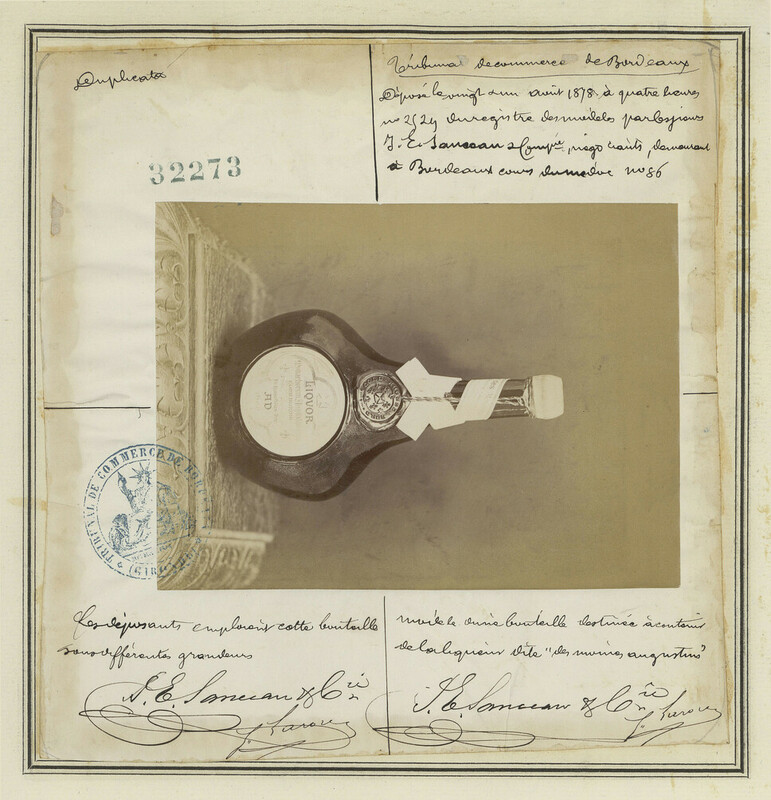 Duplicata
32273
Tribunal de commerce de Bordeaux
Déposé le vingt un août 1878 à quatre heures
no 2529 du registre des modèles par les sieurs
J. E. & Compie, négociants, demeurant
à Bordeaux cours du médoc no 86
LIQVOR
RD
TRIBUNAL DE COMMERCE DE BORDEAUX
(GIRONDE)
Les déposants emploient cette bouteille
sous différentes grandeurs
J. E. & Cie
modèle d'une bouteille destinée à contenir
de la liqueur dite "des moines augustins"
J. E. & Cie